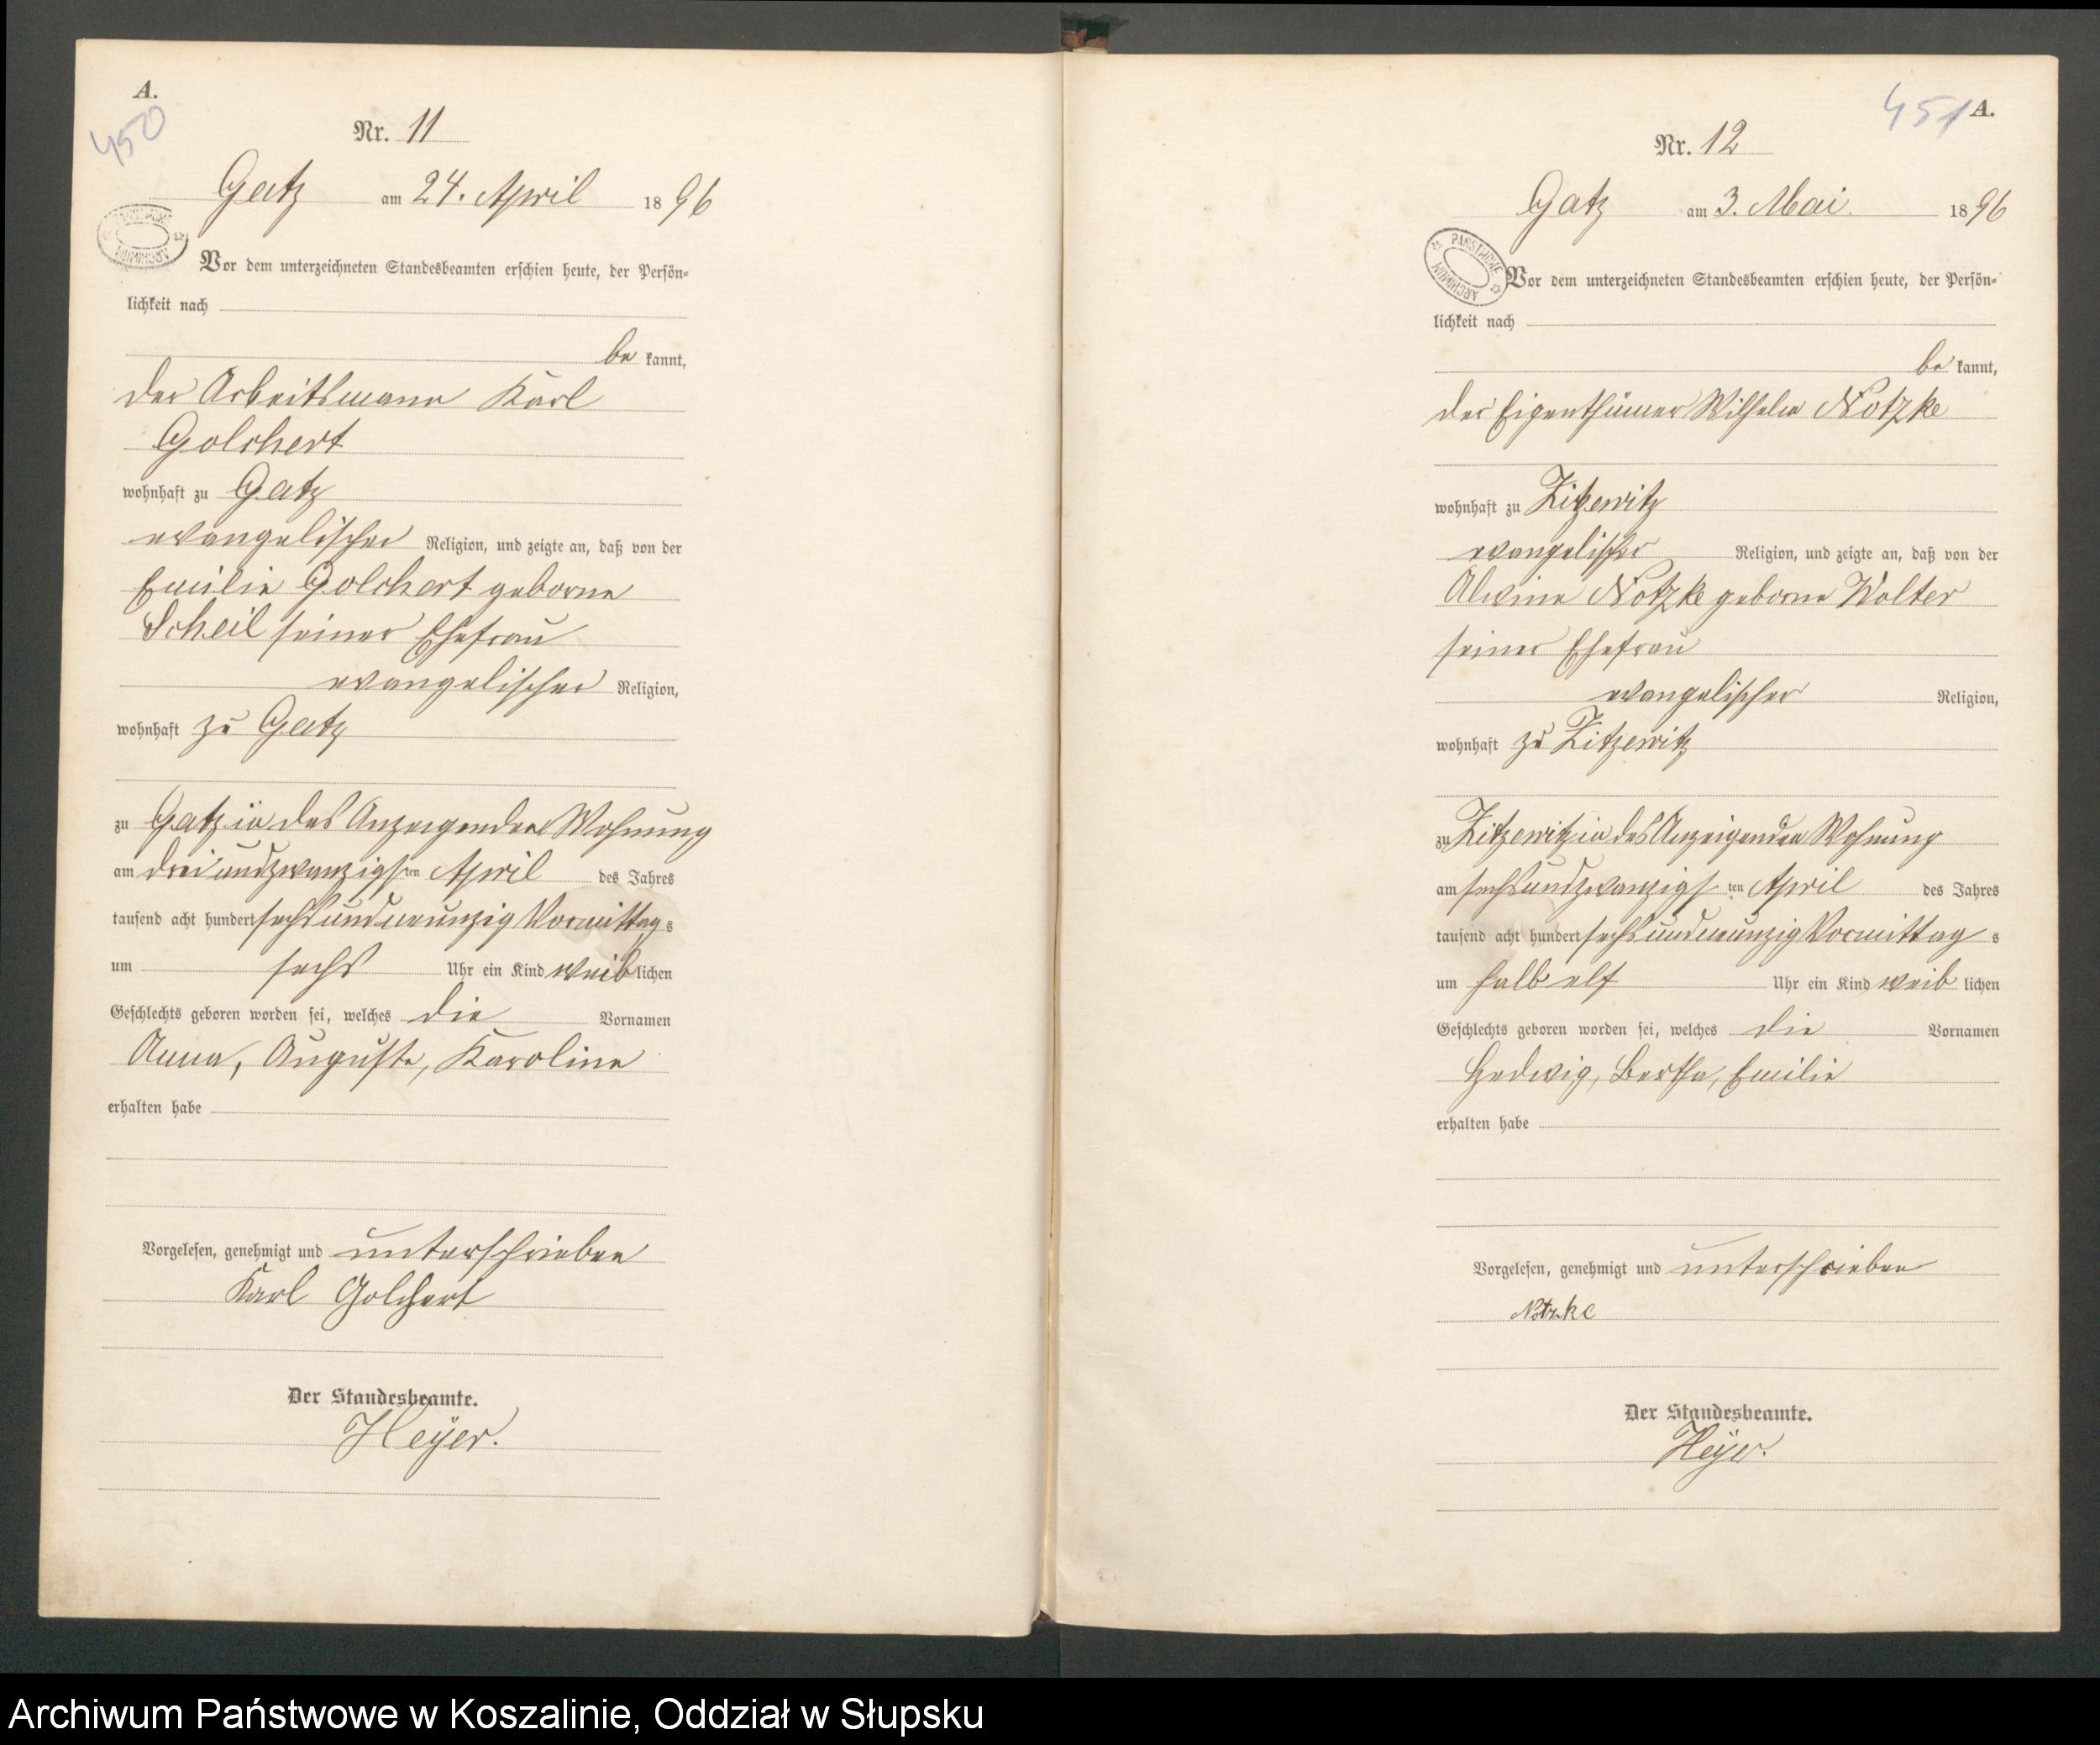 A.
450
Nr. 11
Gatz am 24. April 1896
Vor dem unterzeichneten Standesbeamten erschien heute, der Persön-
lichkeit nach
be kannt,
der Arbeitsmann Karl
Golchert
wohnhaft zu Gatz
evangelischer Religion, und zeigte an, daß von der
Emilie Golchert geborne
Scheil seiner Ehefrau
evangelischer Religion,
wohnhaft zu Gatz
zu Gatz in des Anzeigenden Wohnung
am drei und zwanzigsten April des Jahres
tausend acht hundert sechs und neunzig Vormittags
um sechs Uhr ein Kind weiblichen
Geschlechts geboren worden sei, welches die Vornamen
Anna, Auguste, Karoline
erhalten habe
Vorgelesen, genehmigt und unterschrieben
Karl Golchert
Der Standesbeamte.
Heyer.
451 A.
Nr. 12
Gatz am 3. Mai. 1896
PAŃSTWOWE ARCHIWUM
Vor dem unterzeichneten Standesbeamten erschien heute, der Persön-
lichkeit nach
be kannt,
der Eigenthümer Wilhelm Notzke
wohnhaft zu Zitzewitz
evangelischer Religion, und zeigte an, daß von der
Alwine Notzke geborne Wolter
seiner Ehefrau
evangelischer Religion,
wohnhaft zu Zitzewitz
zu Zitzewitz in des Anzeigenden Wohnung
am sechs und zwanzigsten April des Jahres
tausend acht hundert sechs und neunzig Vormittag s
um halb elf Uhr ein Kind weib lichen
Geschlechts geboren worden sei, welches die Vornamen
Hedwig, Bertha, Emilie
erhalten habe
Vorgelesen, genehmigt und unterschrieben
Notzke
Der Standesbeamte.
Heyer.
Archiwum Państwowe w Koszalinie, Oddział w Słupsku